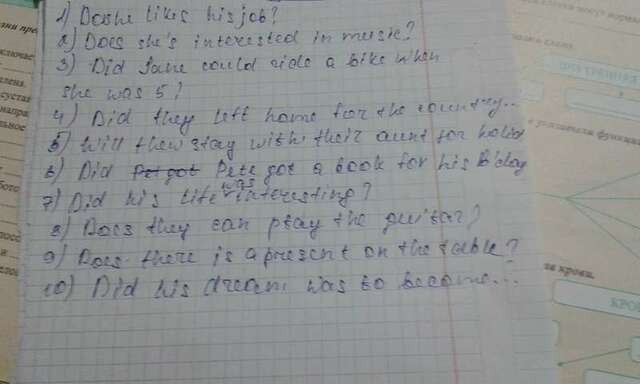 1) Does he likes his job?
2) Does she's interested in music?
3) Did Jane could ride a bike when
she was 5?
4) Did they left home for the country...
5) Will they stay with their aunt for holid
6) Did Pete got a book for his B'day
7) Did his life was interesting?
8) Does they can play the guitar?
9) Does there is a present on the table?
10) Did his dream was to become...
крови.
КРО